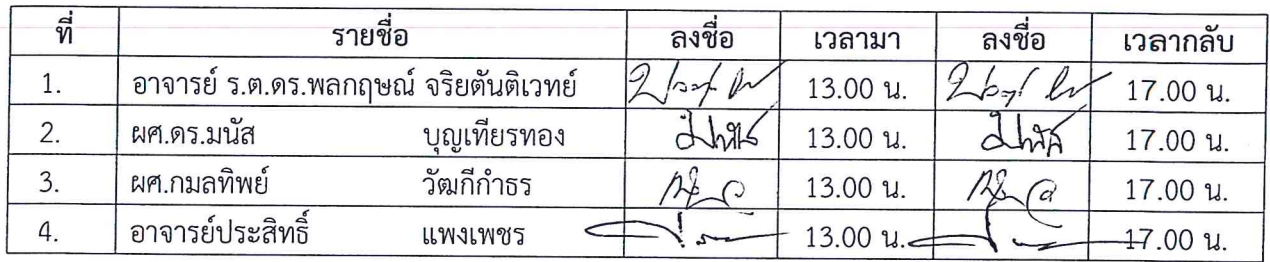 ที่ รายชื่อ ลงชื่อ เวลามา ลงชื่อ เวลากลับ
1. อาจารย์ ร.ต.ดร.พลกฤษณ์ จริยตันติเวทย์ 13.00 น. 17.00 น.
2. ผศ.ดร.มนัส บุญเทียรทอง มนัส 13.00 น. มนัส 17.00 น.
3. ผศ.กมลทิพย์ วัฒกีกำธร 13.00 น. 17.00 น.
4. อาจารย์ประสิทธิ์ แพงเพชร 13.00 น. 17.00 น.